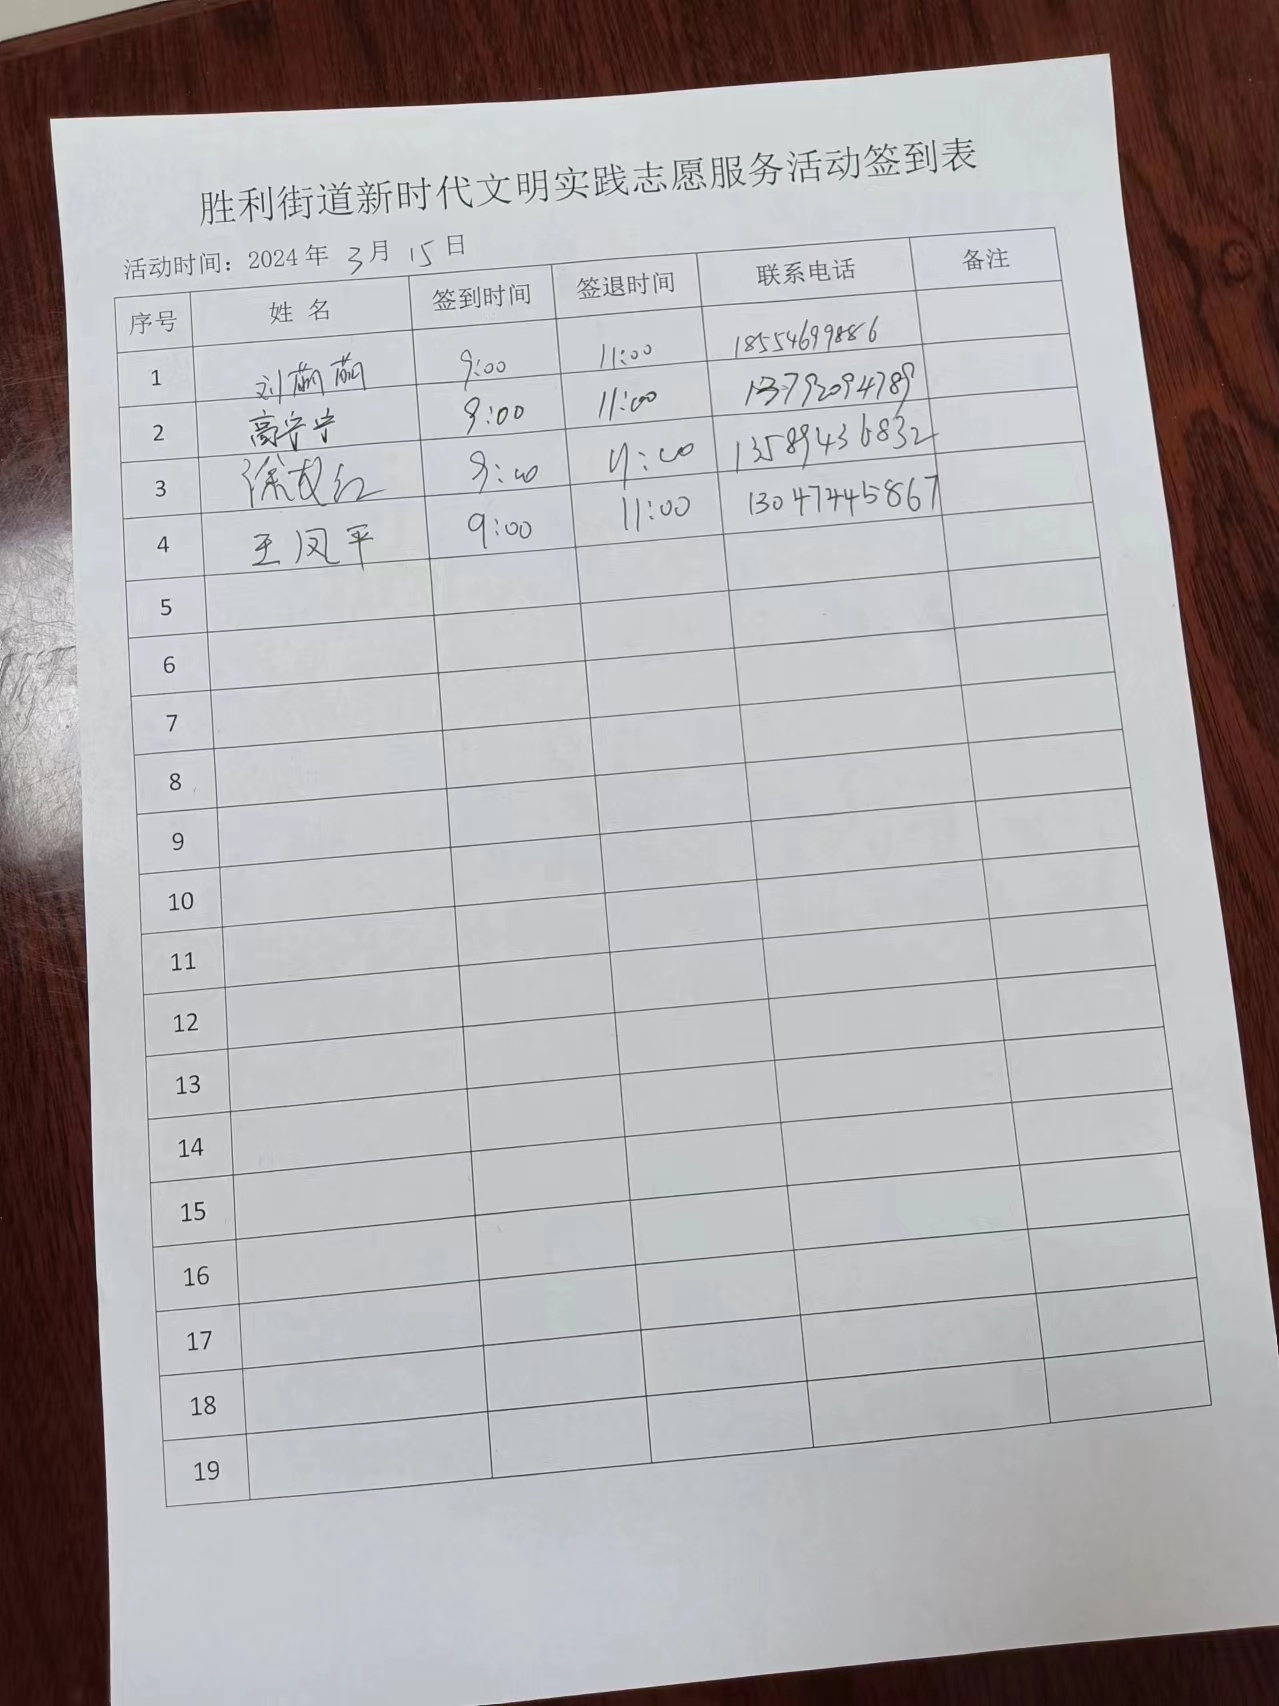 胜利街道新时代文明实践志愿服务活动签到表
活动时间：2024年 3月 15日
序号 姓 名 签到时间 签退时间 联系电话 备注
1 刘萌萌 9:00 11:00 18554699886
2 高宁宁 9:00 11:00 13792094789
3 徐 红 9:00 11:00 13589436832
4 王凤平 9:00 11:00 13047445867
5
6
7
8
9
10
11
12
13
14
15
16
17
18
19